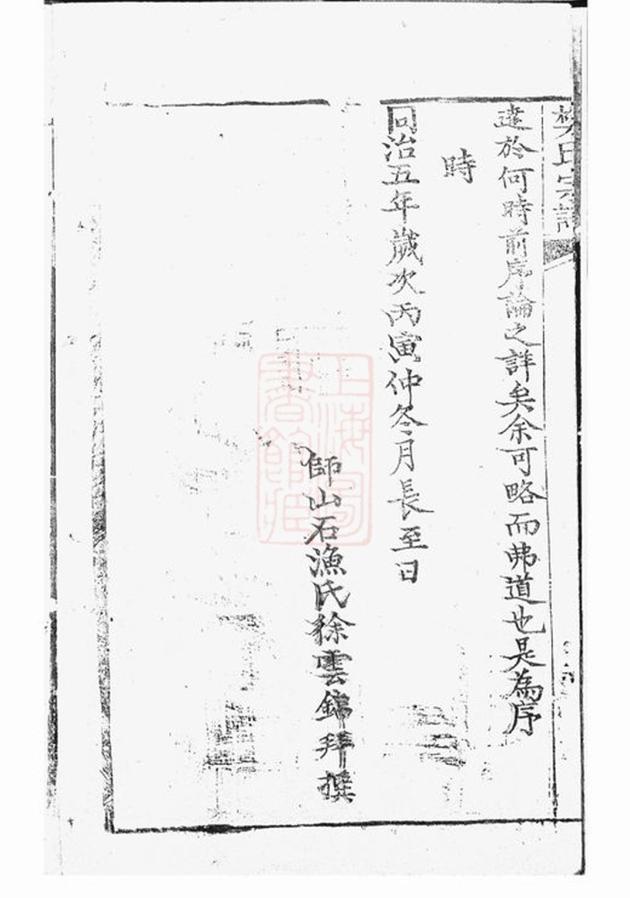 樊氏宗譜
遠於何時前序論之詳矣余可略而弗道也是為序
時
同治五年歲次丙寅仲冬月長至日
師山石漁氏徐雲錦拜撰
上海圖書館藏